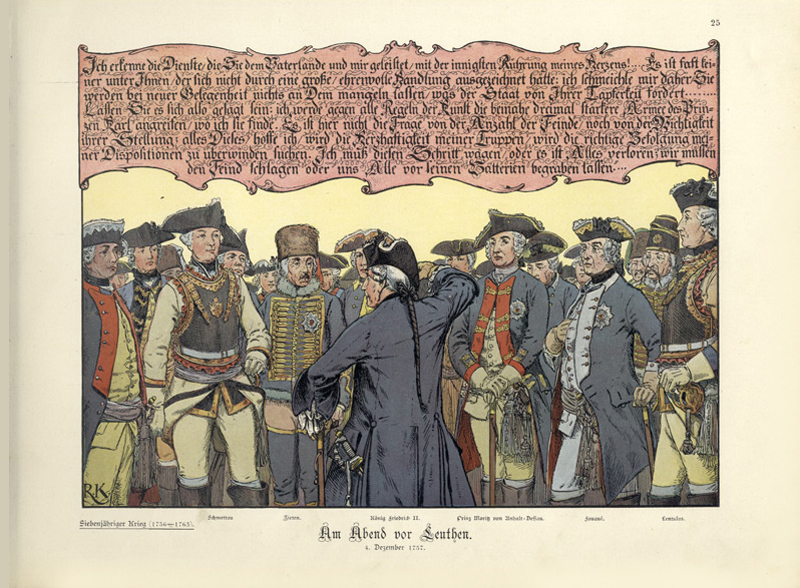 25
Ich erkenne die Dienste, die Sie dem Vaterlande und mir geleistet, mit der innigsten Rührung meines Herzens!... Es ist fast kei-
ner unter Ihnen, der sich nicht durch eine große, ehrenvolle Handlung ausgezeichnet hätte: ich schmeichle mir daher, Sie
werden bei neuer Gelegenheit nichts an Dem mangeln lassen, was der Staat von Ihrer Tapferkeit fordert.......
Lassen Sie es sich also gesagt sein: ich werde gegen alle Regeln der Kunst die beinahe dreimal stärkere Armee des Prin-
zen Karl angreifen, wo ich sie finde. Es ist hier nicht die Frage von der Anzahl der Feinde, noch von der Wichtigkeit
ihrer Stellung; alles Dieses, hoffe ich, wird die Herzhaftigkeit meiner Truppen, wird die richtige Befolgung mei-
ner Dispositionen zu überwinden suchen. Ich muß diesen Schritt wagen, oder es ist Alles verloren; wir müssen
den Feind schlagen oder uns Alle vor seinen Batterien begraben lassen...
RK
Schmettau Zieten. König Friedrich II. Prinz Moritz von Anhalt-Dessau. Fouqué. Lentulus.
Siebenjähriger Krieg (1756–1763).
Am Abend vor Leuthen.
4. Dezember 1757.